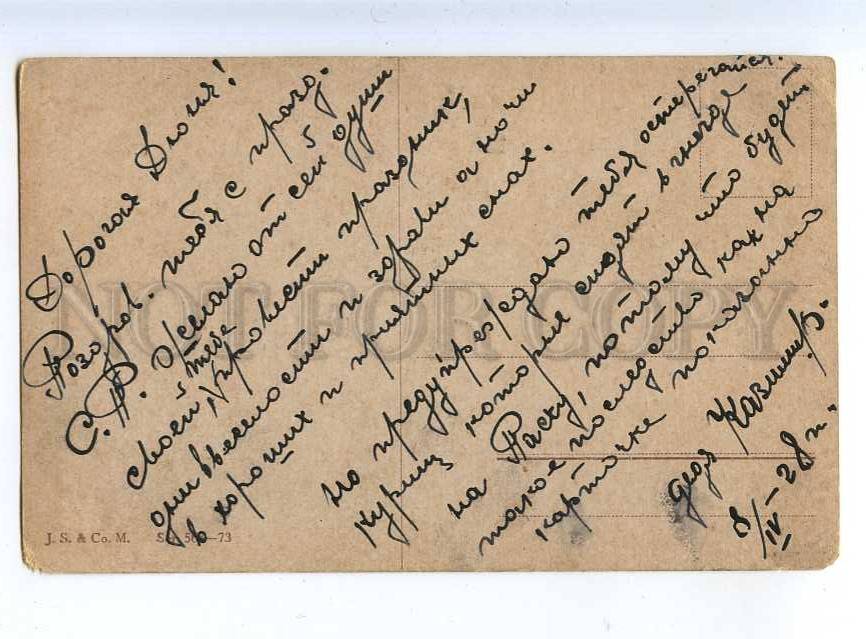 Дорогая Дюня!
Поздров. тебя с празд.
С. П. Желаю от сей души
тебе
своей провести праздник,
дни в веселости и здрави а ночи
в хороших и приятных снах.
но предупреждаю тебя остерегайся.
куриц которые сидят в гнезде
на Пасху, потому что будет
такое последство как на
карточке показанно
дядя Казимир.
8/IV-28 г.
NOT FOR COPY
J. S. & Co. M.